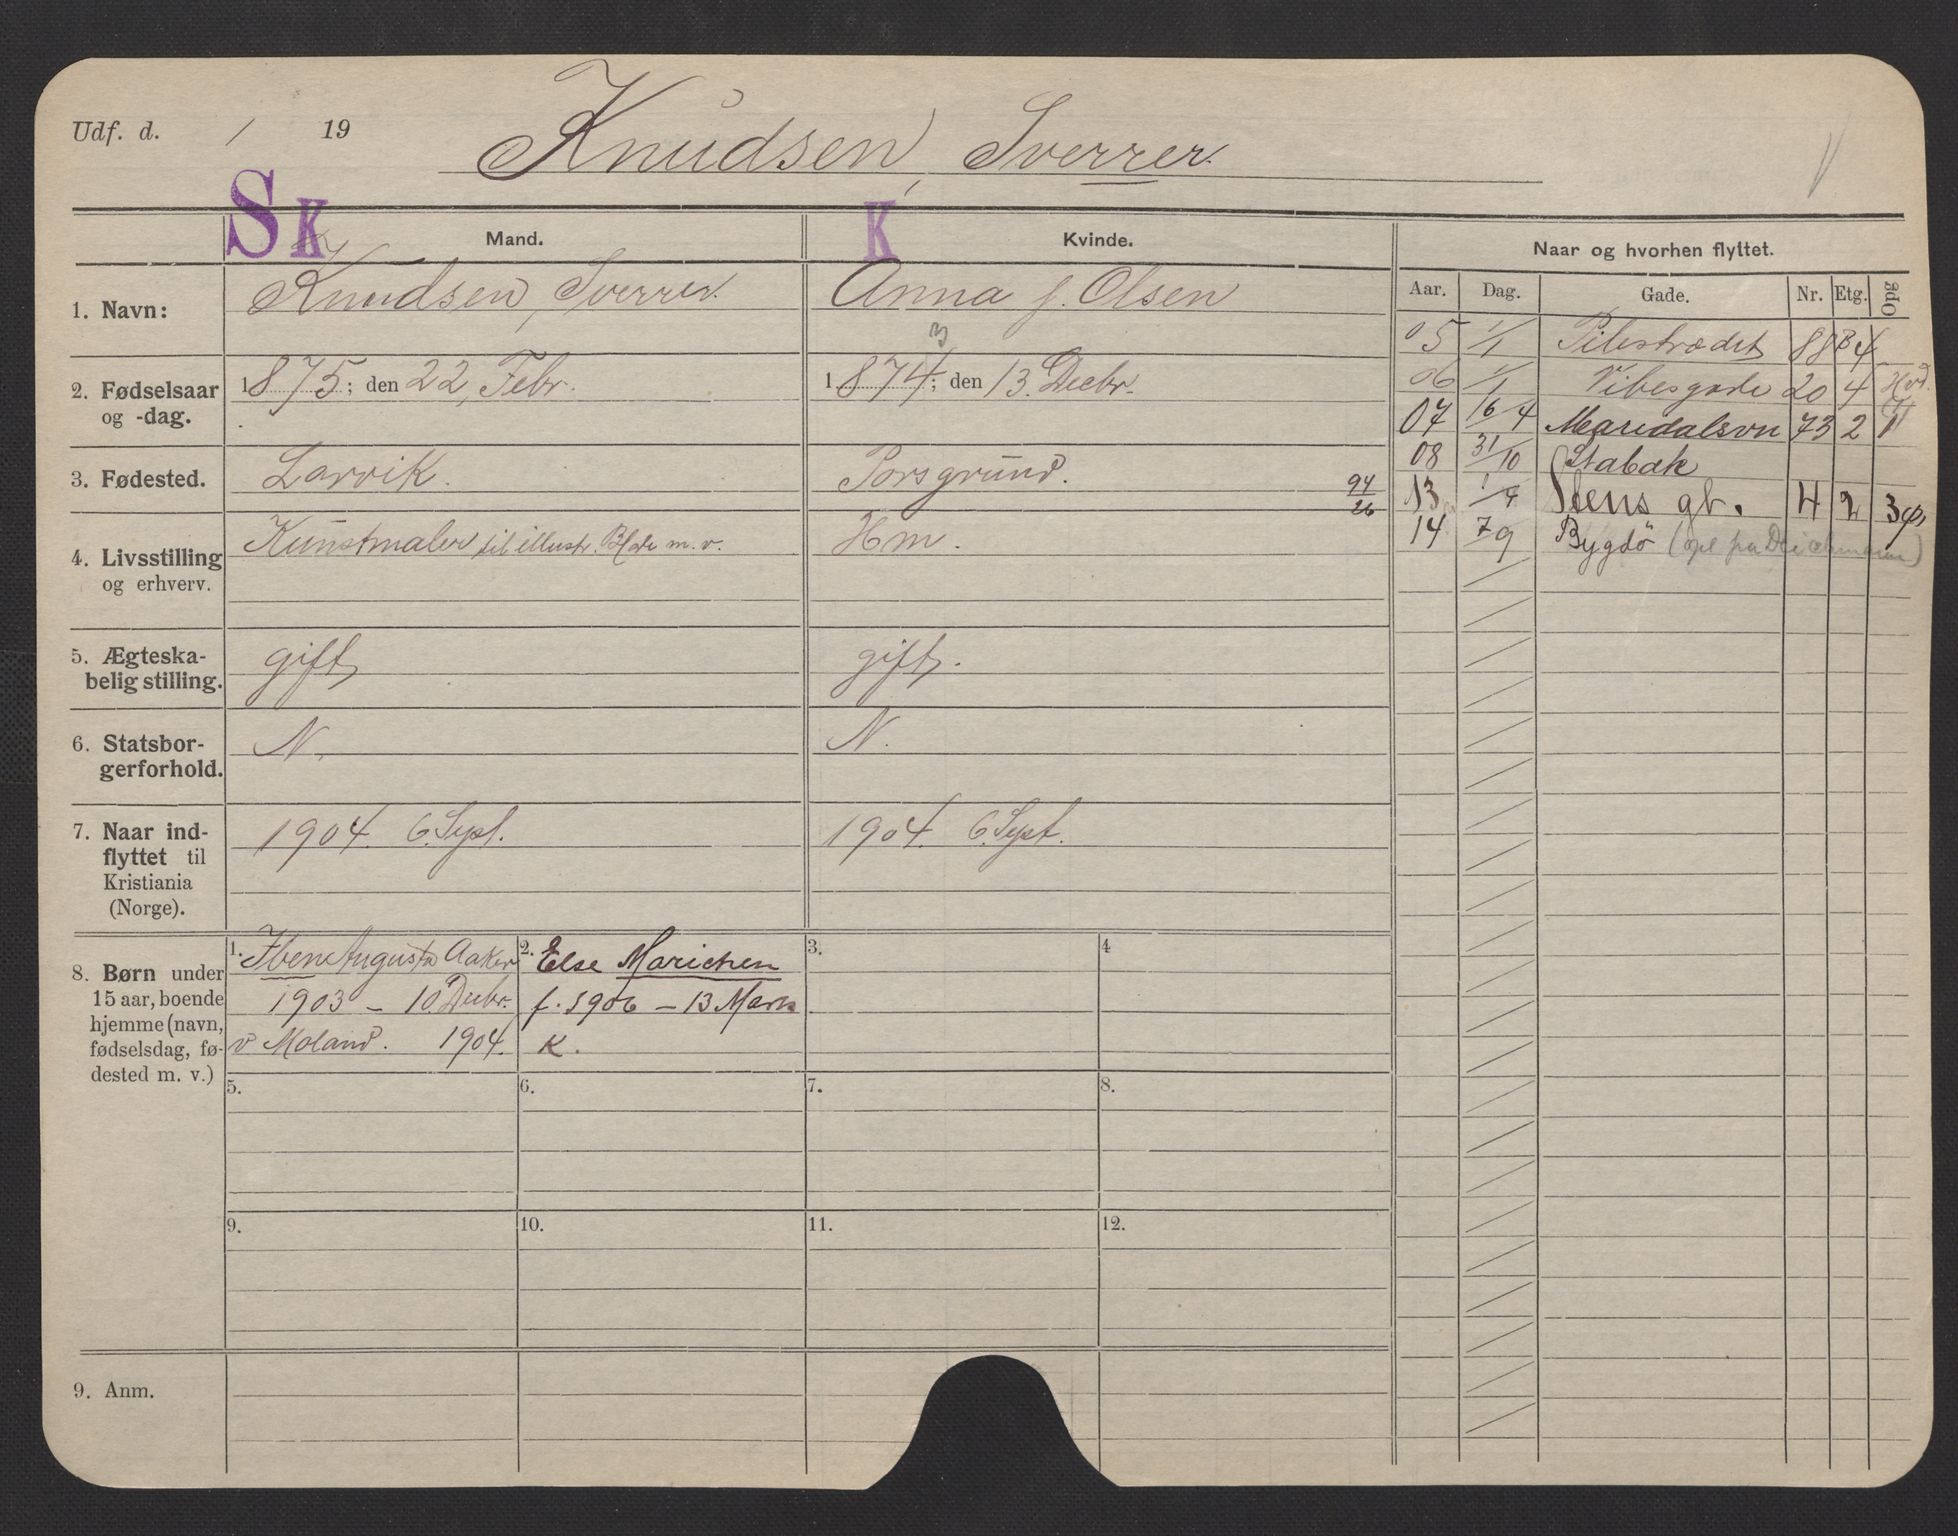 Udf. d. / 19
Knudsen, Sverrer.
S K
K
Mand.
Kvinde.
Naar og hvorhen flyttet.
Aar. Dag. Gade. Nr. Etg. Opg
1. Navn:
Knudsen, Sverrer.
Anna f. Olsen
2. Fødselsaar
og -dag.
1875; den 22, Febr.
3
1874; den 13. Decbr.
3. Fødested.
Larvik.
Porsgrund.
94
26
4. Livsstilling
og erhverv.
Kunstmaler til illustr. Blade m. v.
Hm.
5. Ægteska-
belig stilling.
gift
gift.
6. Statsbor-
gerforhold.
N.
N.
7. Naar ind-
flyttet til
Kristiania
(Norge).
1904. 6. Sept.
1904. 6. Sept.
8. Børn under
15 aar, boende
hjemme (navn,
fødselsdag, fø-
dested m. v.)
1. Augusta
1903 - 10 Decbr.
v Moland. 1904.
2. Else Marichen
f. 1906 - 13 Mars
K.
3.
4
5.
6.
7.
8.
9.
10.
11.
12.
9. Anm.
05 1/1 Pilestrædet 88 B 4
06 1/1 Vibesgade 20 4
07 16/4 Maridalsvn 73 2 1
08 31/10 Stabæk
13 1/4 Stens gt. 4 2
14 7/9 Bygdø (opl fra Deichmann)